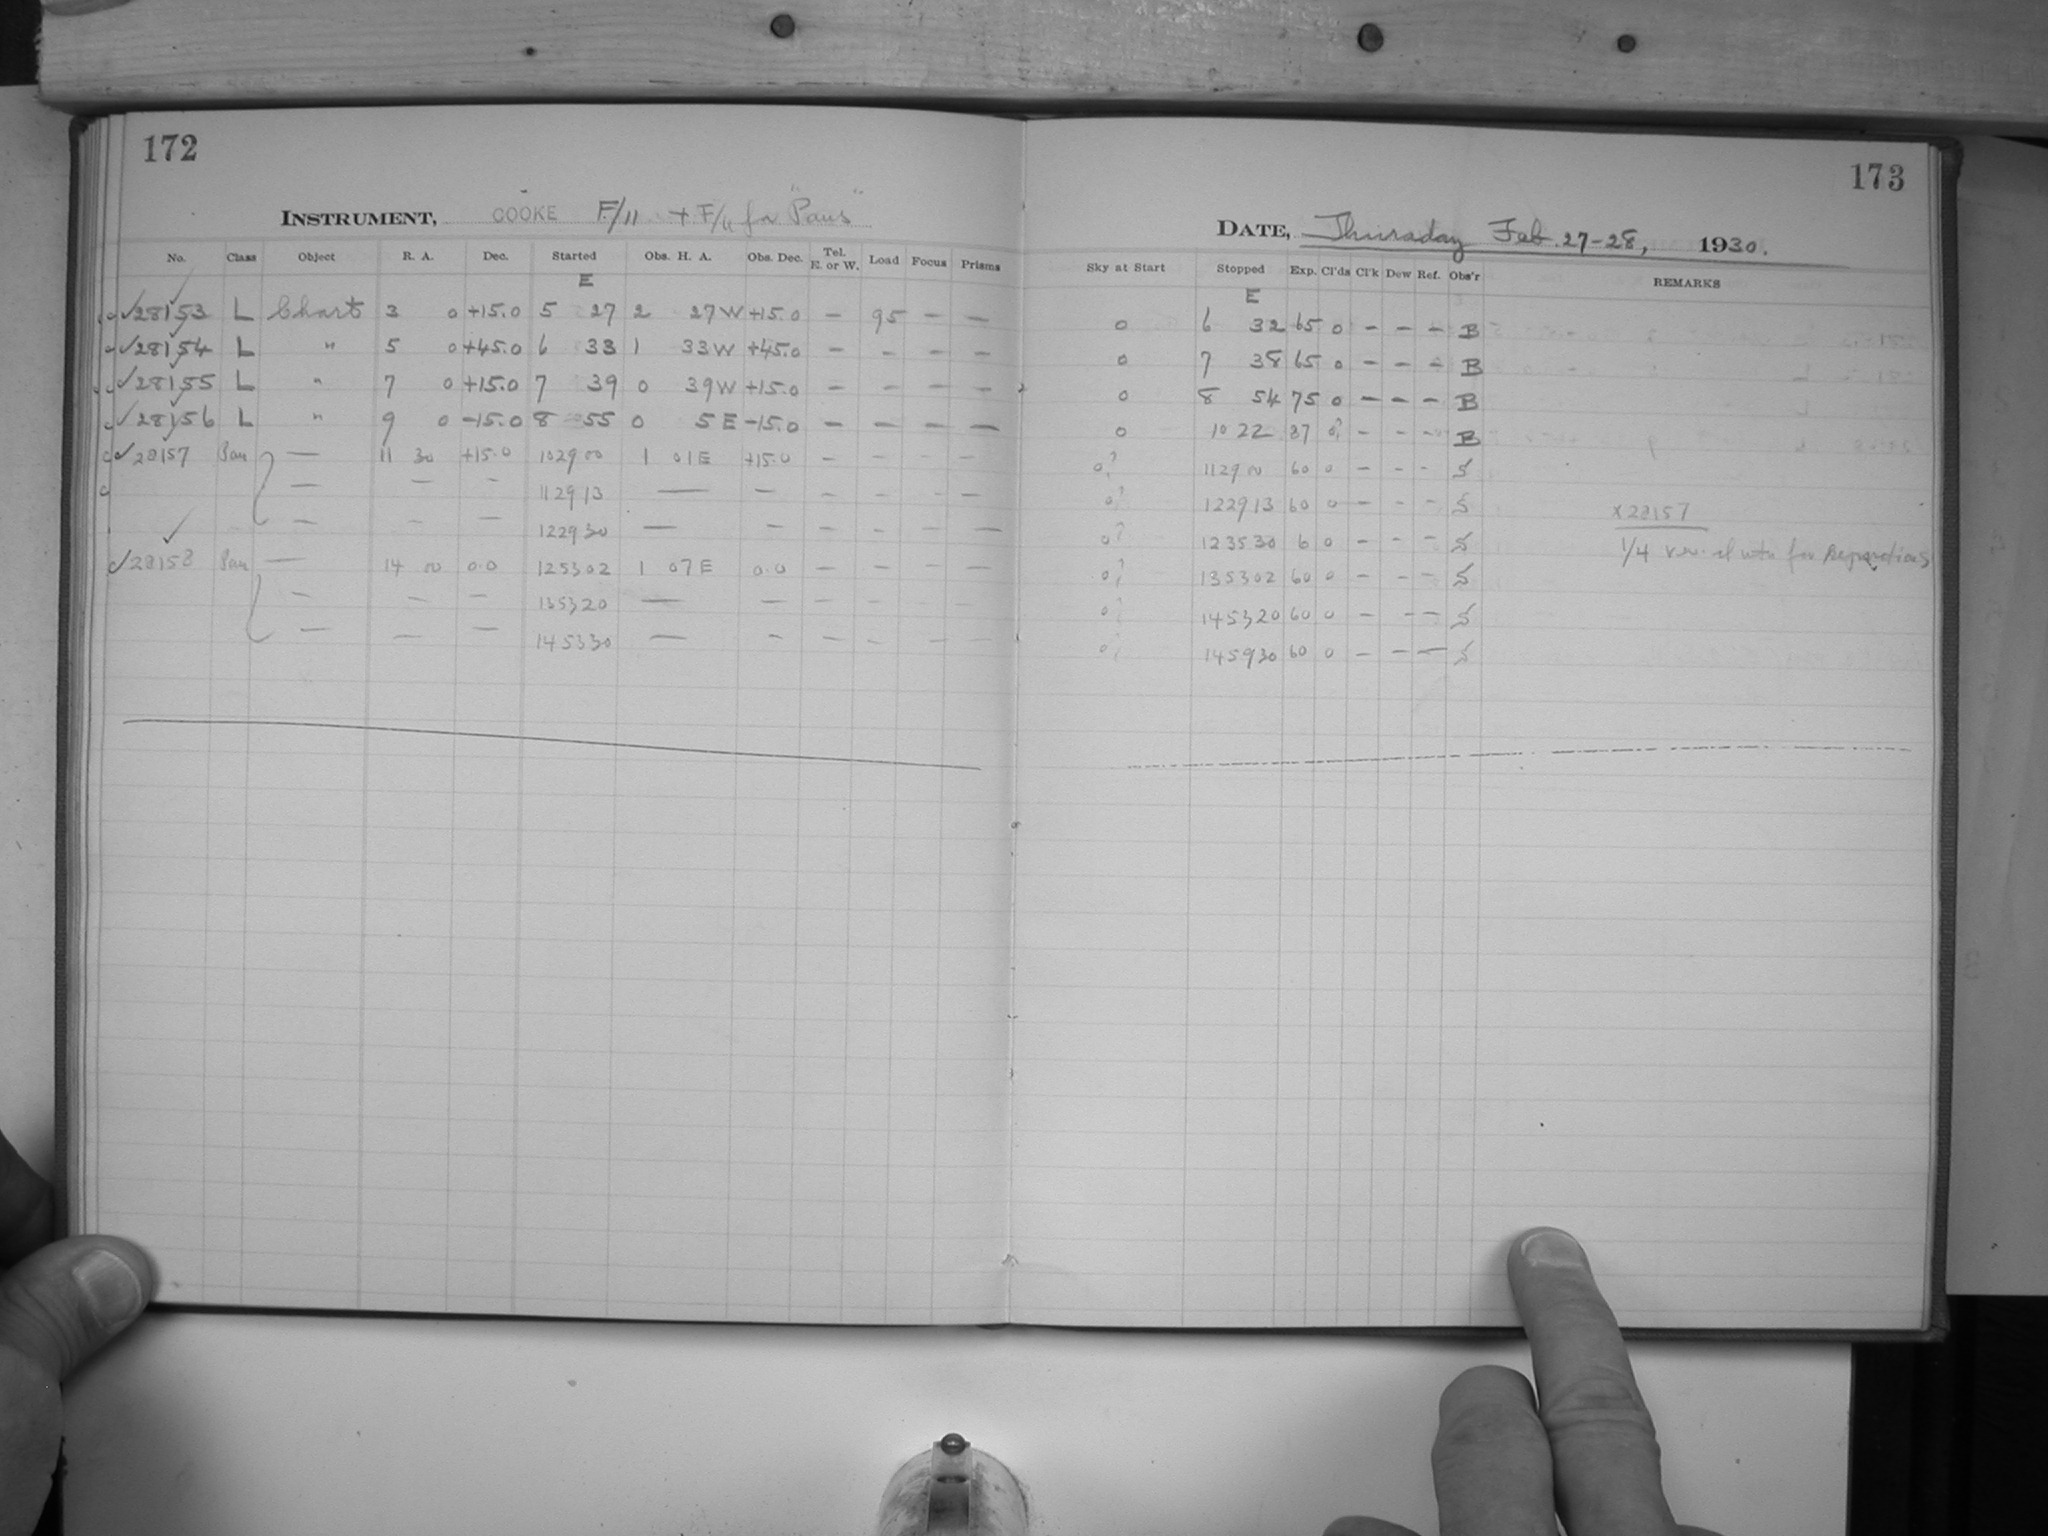 172
INSTRUMENT, COOKE F/11 + F/11 for "Pans"
No. Class Object R. A. Dec. Started Obs. H. A. Obs. Dec. Tel. E. or W. Load Focus Prisms
E
✓28153 L Chart 3 0 +15.0 5 27 2 27 W +15.0 — 95 — —
✓28154 L " 5 0 +45.0 6 33 1 33 W +45.0 — — — —
✓28155 L " 7 0 +15.0 7 39 0 39 W +15.0 — — — —
✓28156 L " 9 0 -15.0 8 55 0 5 E -15.0 — — — —
✓28157 Pan — 11 30 +15.0 10 29 00 1 01 E +15.0 — — — —
— — — 11 29 13 — — — — — —
— — — 12 29 30 — — — — — —
✓28158 Pan — 14 00 0.0 12 53 02 1 07 E 0.0 — — — —
— — — 13 53 20 — — — — — —
— — — 14 53 30 — — — — — —
173
DATE, Thursday Feb. 27-28, 1930.
Sky at Start Stopped Exp. Cl'ds Cl'k Dew Ref. Obs'r REMARKS
E
0 6 32 65 0 — — — B
0 7 38 65 0 — — — B
0 8 54 75 0 — — — B
0 10 22 87 0? — — — B
0? 11 29 00 60 0 — — — S
0? 12 29 13 60 0 — — — S
x28157
0? 12 35 30 6 0 — — — S
1/4 for
0? 13 53 02 60 0 — — — S
0? 14 53 20 60 0 — — — S
0? 14 59 30 60 0 — — — S